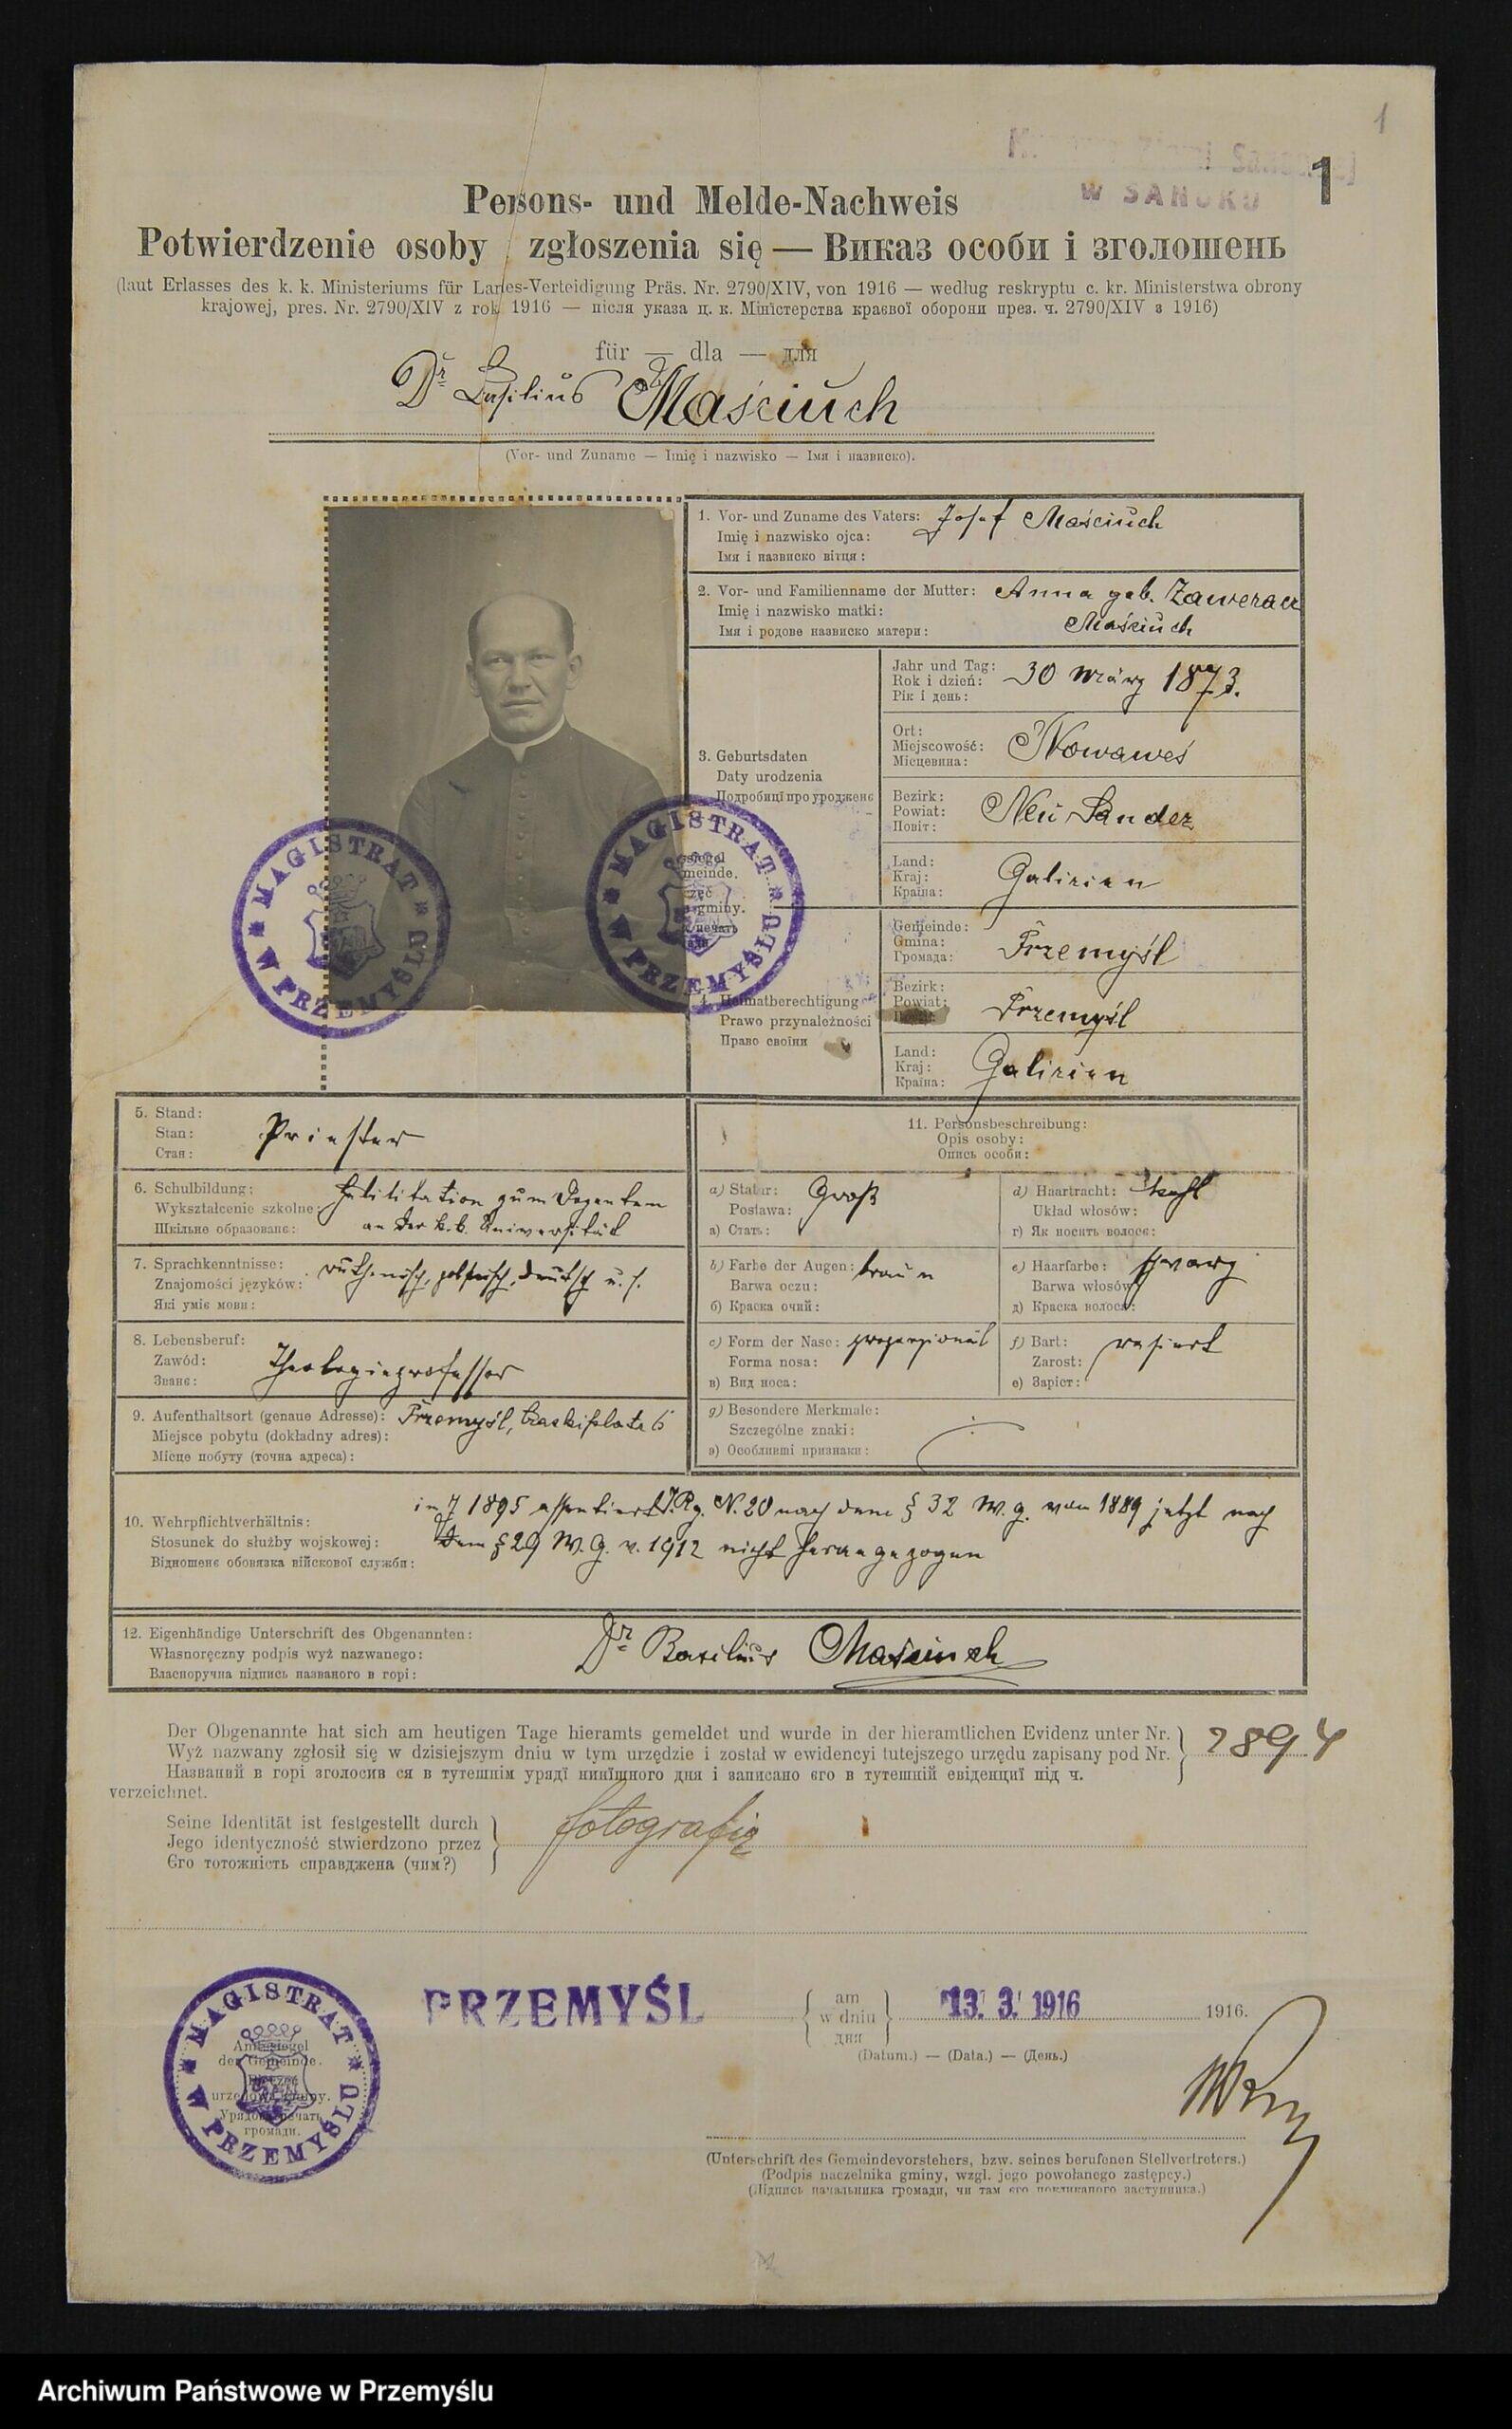 1
W SANOKU
1
Persons- und Melde-Nachweis
Potwierdzenie osoby zgłoszenia się — Виказ особи і зголошень
(laut Erlasses des k. k. Ministeriums für Landes-Verteidigung Präs. Nr. 2790/XIV, von 1916 — według reskryptu c. kr. Ministerstwa obrony
krajowej, pres. Nr. 2790/XIV z rok 1916 — після указа ц. к. Міністерства краєвої оборони през. ч. 2790/XIV з 1916)
für — dla — для
Dr Basilius Maściuch
(Vor- und Zuname — Imię i nazwisko — Імя і назвиско).
1. Vor- und Zuname des Vaters: Josef Maściuch
Imię i nazwisko ojca:
Імя і назвиско вітця:
2. Vor- und Familienname der Mutter: Anna geb. Zaweracz
Imię i nazwisko matki: Maściuch
Імя і родове назвиско матери:
3. Geburtsdaten
Daty urodzenia
Подробиці про уродженє
Jahr und Tag: 30 März 1873.
Rok i dzień:
Рік і день:
Ort: Nowawieś
Miejscowość:
Місцевина:
Bezirk: Neu Sandez
Powiat:
Повіт:
Land: Galizien
Kraj:
Країна:
4. Heimatberechtigung
Prawo przynależności
Право своїни
Gemeinde: Przemyśl
Gmina:
Громада:
Bezirk: Przemyśl
Powiat:
Land: Galizien
Kraj:
Країна:
MAGISTRAT W PRZEMYŚLU
MAGISTRAT W PRZEMYŚLU
5. Stand: Priester
Stan:
Стан:
6. Schulbildung: Habilitation zum Dozenten
Wykształcenie szkolne: an der k. k. Universität
Шкільне образованє:
7. Sprachkenntnisse: ruthenisch, polnisch, deutsch
Znajomości języków:
Які уміє мови:
8. Lebensberuf: Theologieprofessor
Zawód:
Званє:
9. Aufenthaltsort (genaue Adresse): Przemyśl, 6
Miejsce pobytu (dokładny adres):
Місце побуту (точна адреса):
11. Personsbeschreibung:
Opis osoby:
Опись особи:
a) Statur: Groß
Postawa:
а) Стать:
d) Haartracht: kahl
Układ włosów:
г) Як носить волосє:
b) Farbe der Augen: braun
Barwa oczu:
б) Краска очий:
e) Haarfarbe: schwarz
Barwa włosów
д) Краска волося:
c) Form der Nase: proporzionál
Forma nosa:
в) Вид носа:
f) Bart: rasiert
Zarost:
е) Заріст:
g) Besondere Merkmale:
Szczególne znaki:
Особливші признаки:
10. Wehrpflichtverhältnis: im J 1895 assentiert I.Rg. N. 20 nach dem § 32 W. g. vom 1889 jetzt nach
Stosunek do służby wojskowej: dem § 29 W. G. v. 1912 nicht herangezogen
Відношенє обовязка війскової служби:
12. Eigenhändige Unterschrift des Obgenannten: Dr Basilius Maściuch
Własnoręczny podpis wyż nazwanego:
Власноручна підпись названого в горі:
Der Obgenannte hat sich am heutigen Tage hieramts gemeldet und wurde in der hieramtlichen Evidenz unter Nr.
Wyż nazwany zgłosił się w dzisiejszym dniu w tym urzędzie i został w ewidencyi tutejszego urzędu zapisany pod Nr. 2894
Названий в горі зголосив ся в тутешнім уряді нинїшного дня і записано єго в тутешній евіденциї під ч.
verzeichnet.
Seine Identität ist festgestellt durch
Jego identyczność stwierdzono przez fotografię
Єго тотожність справджена (чим?)
MAGISTRAT W PRZEMYŚLU
Amtssiegel
der Gemeinde.
Pieczęć
urzędowa gminy.
Урядова печать
громади.
PRZEMYŚL
am
w dniu 13. 3. 1916 1916.
дня
(Datum.) — (Data.) — (День.)
(Unterschrift des Gemeindevorstehers, bzw. seines berufenen Stellvertreters.)
(Podpis naczelnika gminy, wzgl. jego powołanego zastępcy.)
(Підпись начальника громади, чи там єго покликаного заступника.)
Archiwum Państwowe w Przemyślu